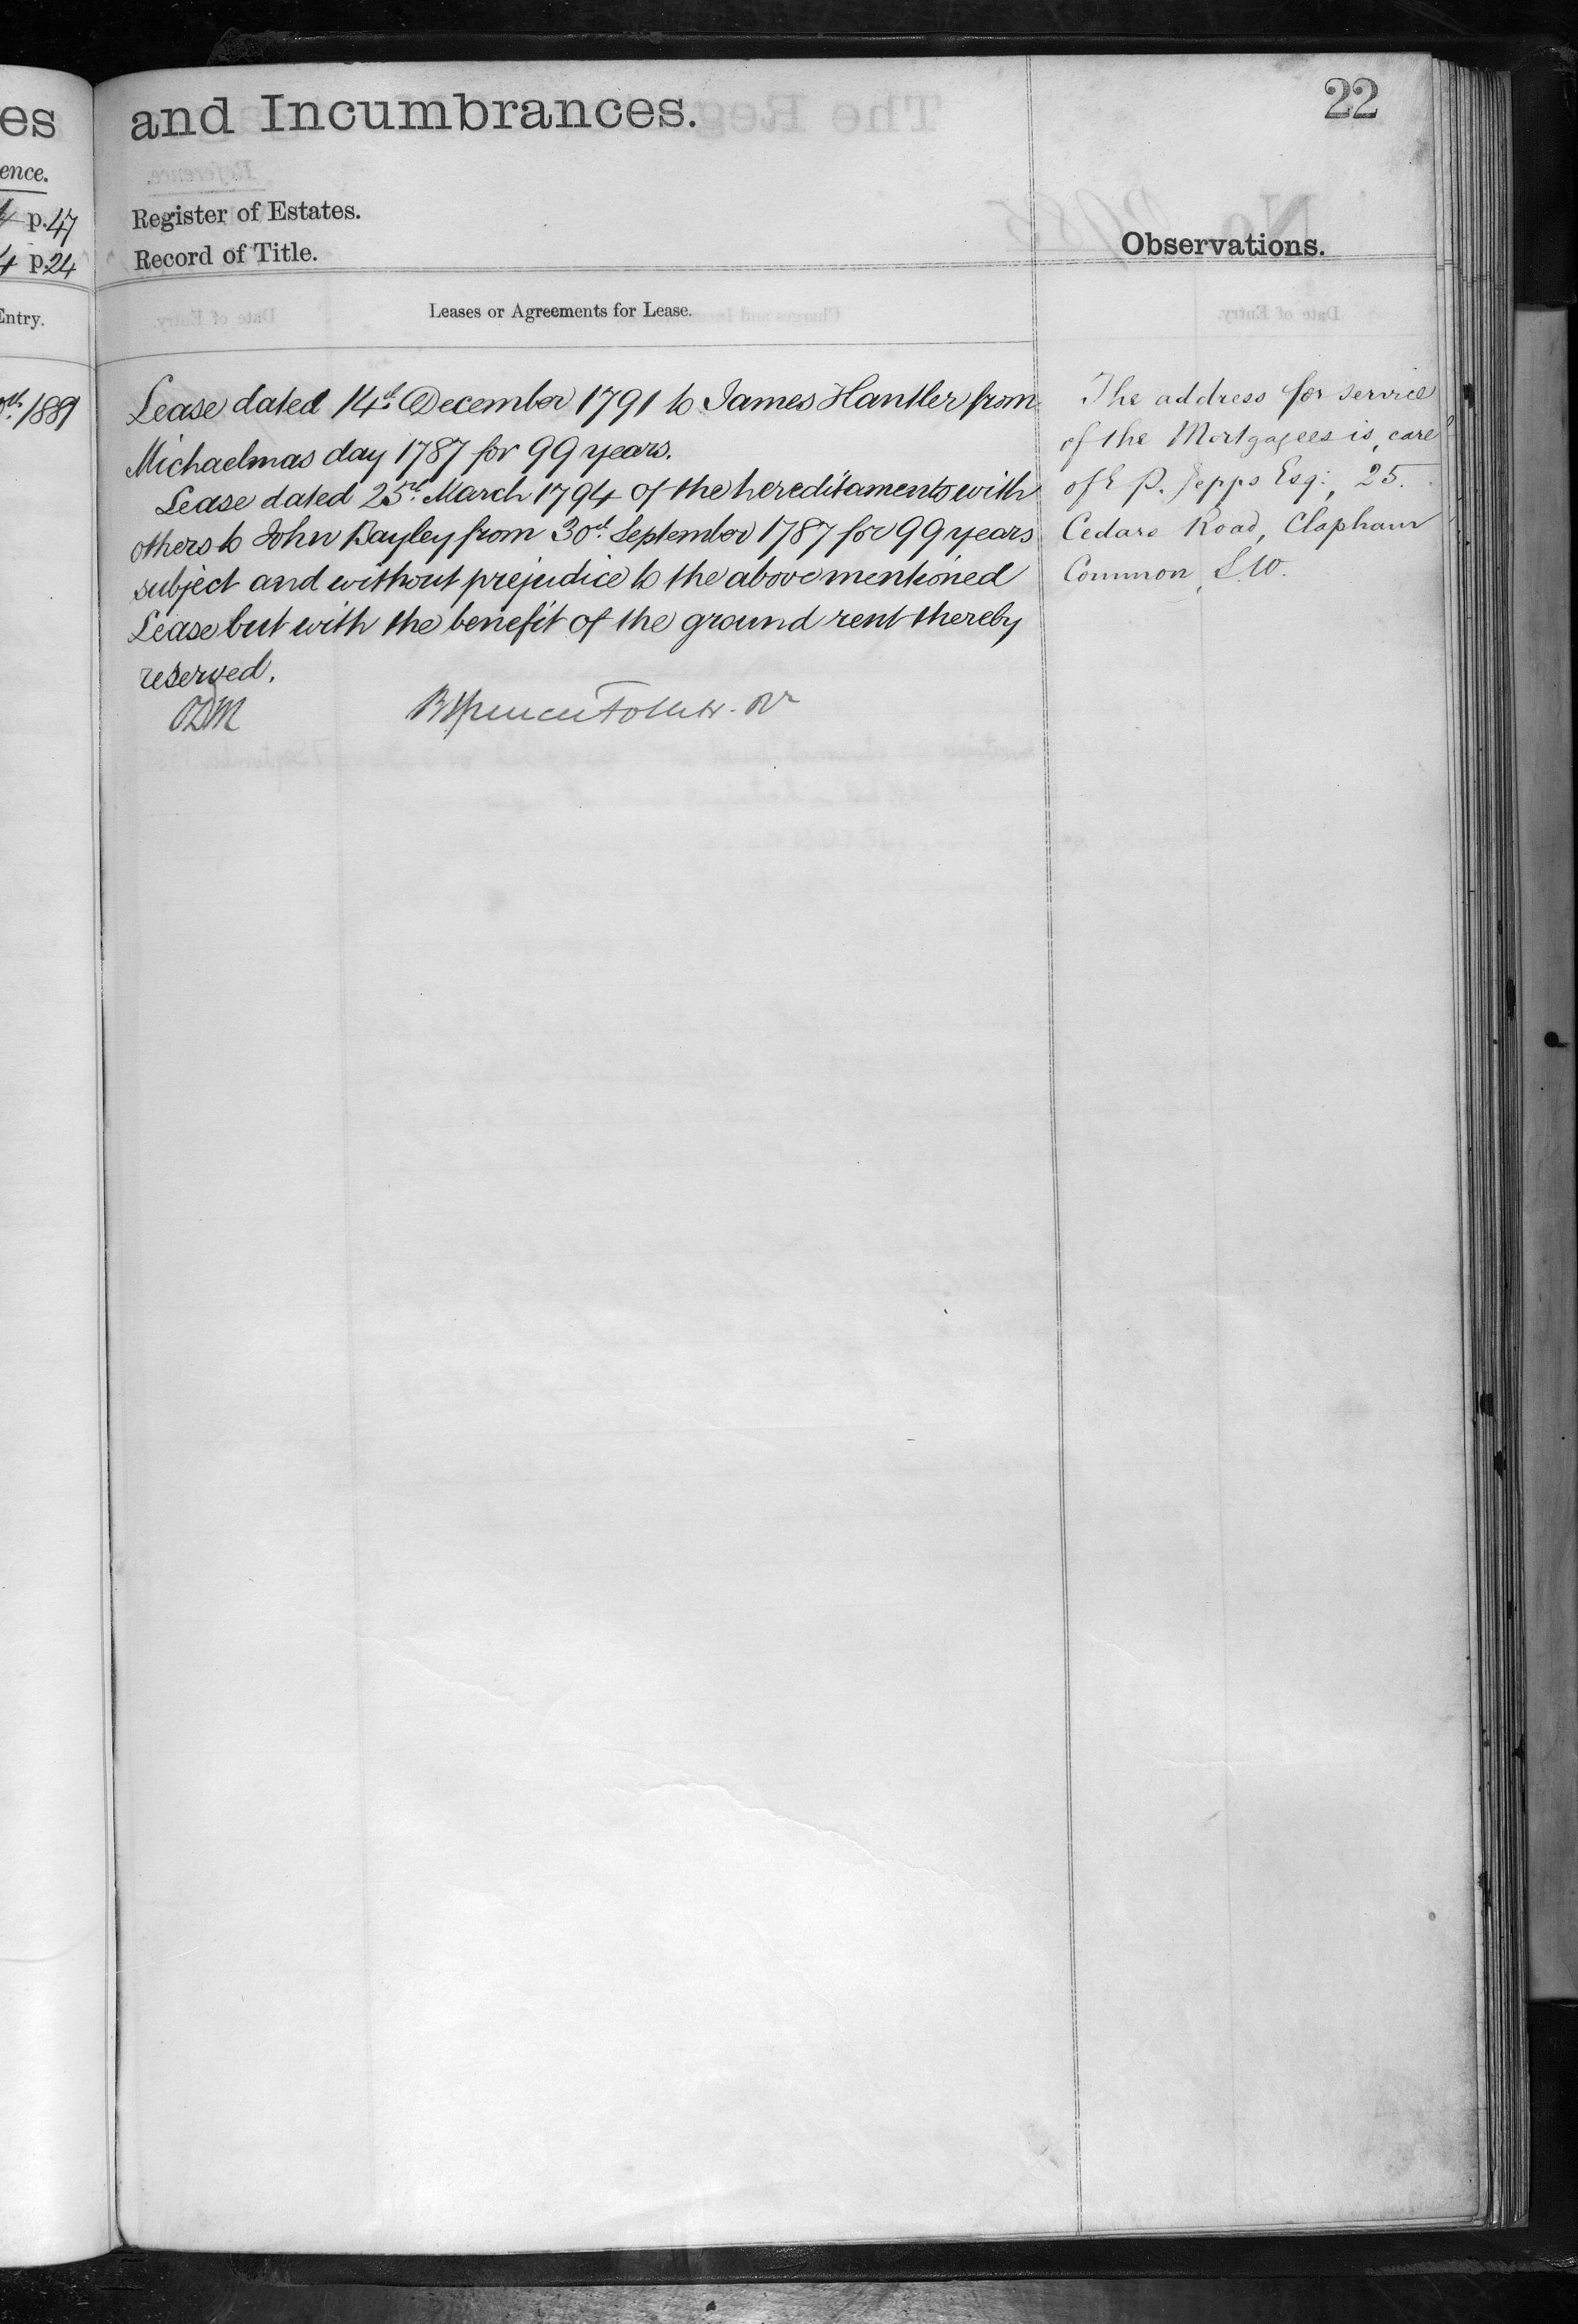 es
ence.
p. 47
4 p. 24
Entry.
1889
and Incumbrances.
22
Register of Estates.
Record of Title.
Observations.
Leases or Agreements for Lease.
Lease dated 14th December 1791 to James Hantler from
Michaelmas day 1787 for 99 years.
Lease dated March 1794 of the hereditaments with
others to John Bayley from 30th September 1787 for 99 years
subject and without prejudice to the above mentioned
Lease but with the benefit of the ground rent thereby
reserved.
The address for service
of the Mortgagees is, care
of E P. Jepps Esq:, 25.
Cedars Road, Clapham
Common, S.W.